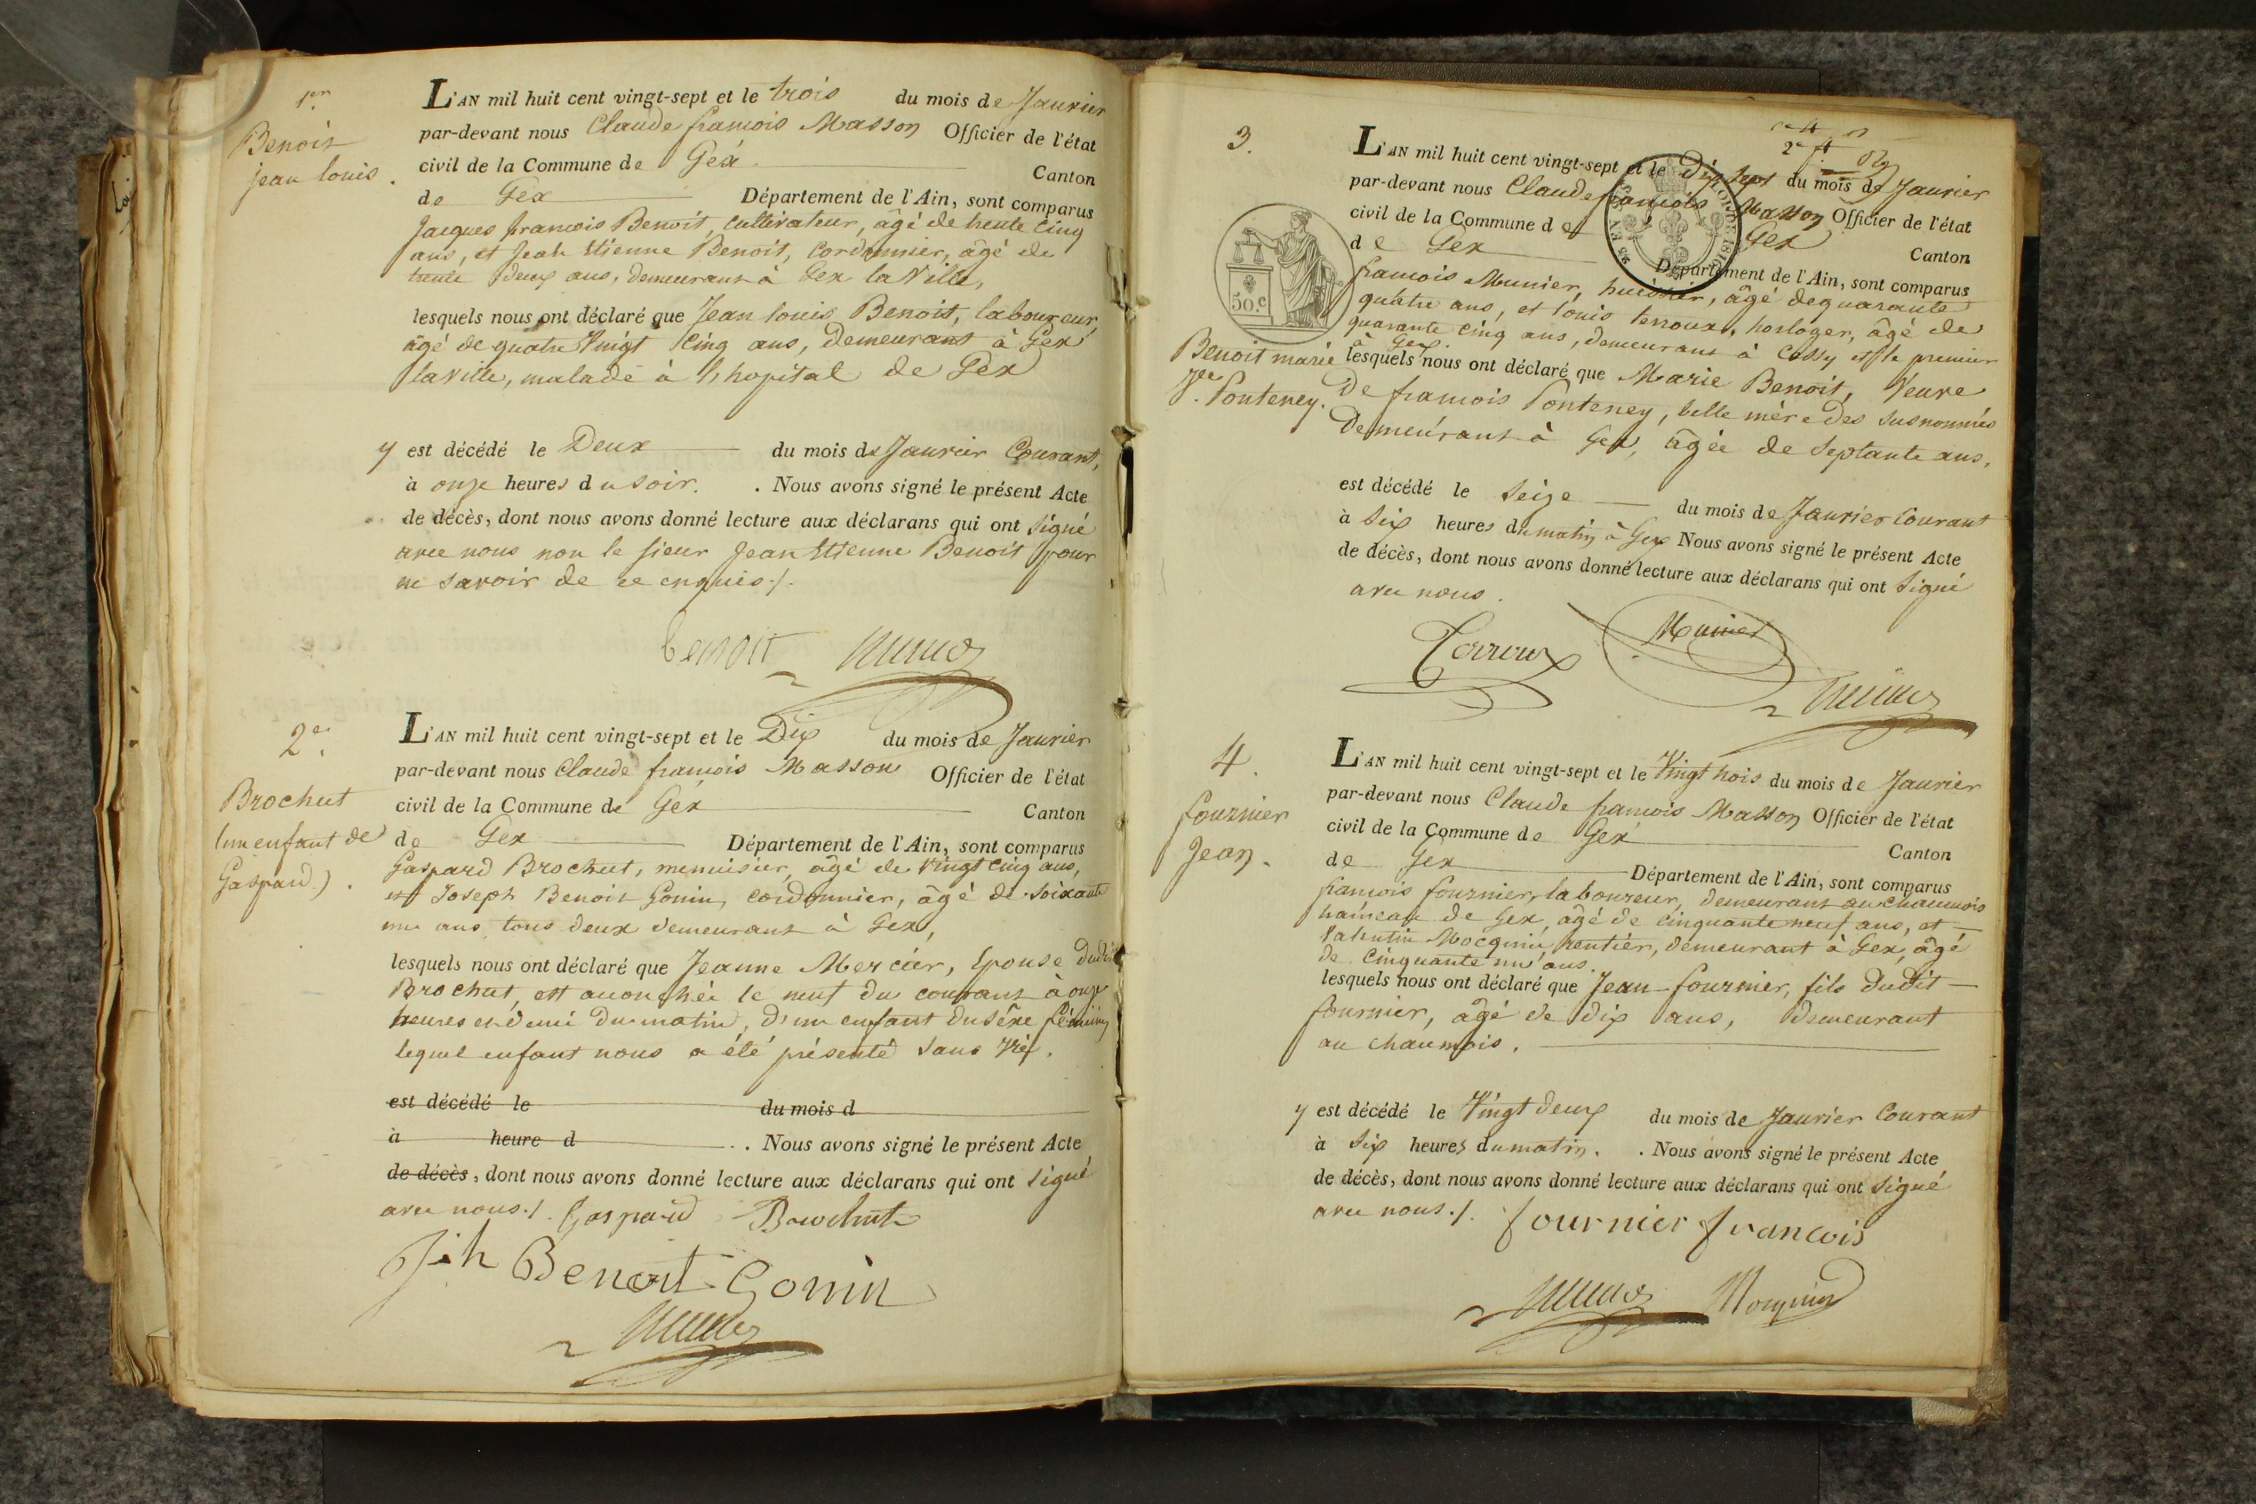 1er
Benoit
jean louis.
L'AN mil huit cent vingt-sept et le trois du mois de Janvier
par-devant nous Claude francois Masson Officier de l'état
civil de la Commune de Gex Canton
de Gex Département de l'Ain, sont comparus
Jacques francois Benoit, cultivateur, âgé de trente cinq
ans, et Jean Etienne Benoit, cordonnier, âgé de
trente deux ans, demeurant à Gex la Ville,
lesquels nous ont déclaré que Jean louis Benoit, laboureur,
âgé de quatre Vingt Cinq ans, Demeurant à Gex
la ville, malade à l'hopital de Gex
y est décédé le Deux du mois de Janvier Courant,
à onze heures du soir. . Nous avons signé le présent Acte
de décès, dont nous avons donné lecture aux déclarans qui ont signé
avec nous non le sieur Jean Etienne Benoit pour
ne savoir de ce enquis./.
benoit
2e.
Brochut
(un enfant de
Gaspard).
L'AN mil huit cent vingt-sept et le Dix du mois de Janvier
par-devant nous Claude françois Masson Officier de l'état
civil de la Commune de Gex Canton
de Gex Département de l'Ain, sont comparus
Gaspard Brochut, menuisier, âgé de Vingt Cinq ans,
et Joseph Benoit Gonin, cordonnier, âgé de soixante
un ans tous deux demeurant à Gex,
lesquels nous ont déclaré que Jeanne Mercier, Epouse dudit
Brochut, est accouchée le neuf du courant à onze
heures et demie du matin, d'un enfant du sexe féminin
lequel enfant nous a été présenté sans vie.
est décédé le du mois d
à heure d . Nous avons signé le présent Acte
de décès, dont nous avons donné lecture aux déclarans qui ont signé
avec nous./. Gaspard Brochut
Jph Benoit Gonin
3.
Benoit marie
Vve Ponteney.
50.c
2e
L'AN mil huit cent vingt-sept et le Dix Sept du mois de Janvier
par-devant nous Claude francois Masson Officier de l'état
civil de la Commune de Gex
de Gex Canton
Département de l'Ain, sont comparus
francois Munier, huissier, âgé de quarante
quatre ans, et louis terroux, horloger, âgé de
quarante cinq ans, demeurant à Cessy et le premier
à Gex.
lesquels nous ont déclaré que Marie Benoit, Veuve
De francois Ponteney, belle mère des susnommés
Demeurant à Gex, âgée de Septante ans,
est décédé le Seize du mois de Janvier Courant
à Six heures du matin à Gex Nous avons signé le présent Acte
de décès, dont nous avons donné lecture aux déclarans qui ont signé
avec nous.
Terroux Munier
4.
fournier
Jean.
L'AN mil huit cent vingt-sept et le Vingt trois du mois de Janvier
par-devant nous Claude francois Masson Officier de l'état
civil de la Commune de Gex Canton
de Gex Département de l'Ain, sont comparus
francois fournier, laboureur, demeurant au chaumois
hameau de Gex, âgé de cinquante neuf ans, et
Valentin Mocquin, rentier, demeurant à Gex, âgé
de Cinquante un ans.
lesquels nous ont déclaré que Jean fournier, fils dudit
fournier, âgé de dix ans, demeurant
au chaumois.
y est décédé le Vingt deux du mois de Janvier Courant
à Six heures du matin. . Nous avons signé le présent Acte
de décès, dont nous avons donné lecture aux déclarans qui ont signé
avec nous./. fournier francois
Mocquin